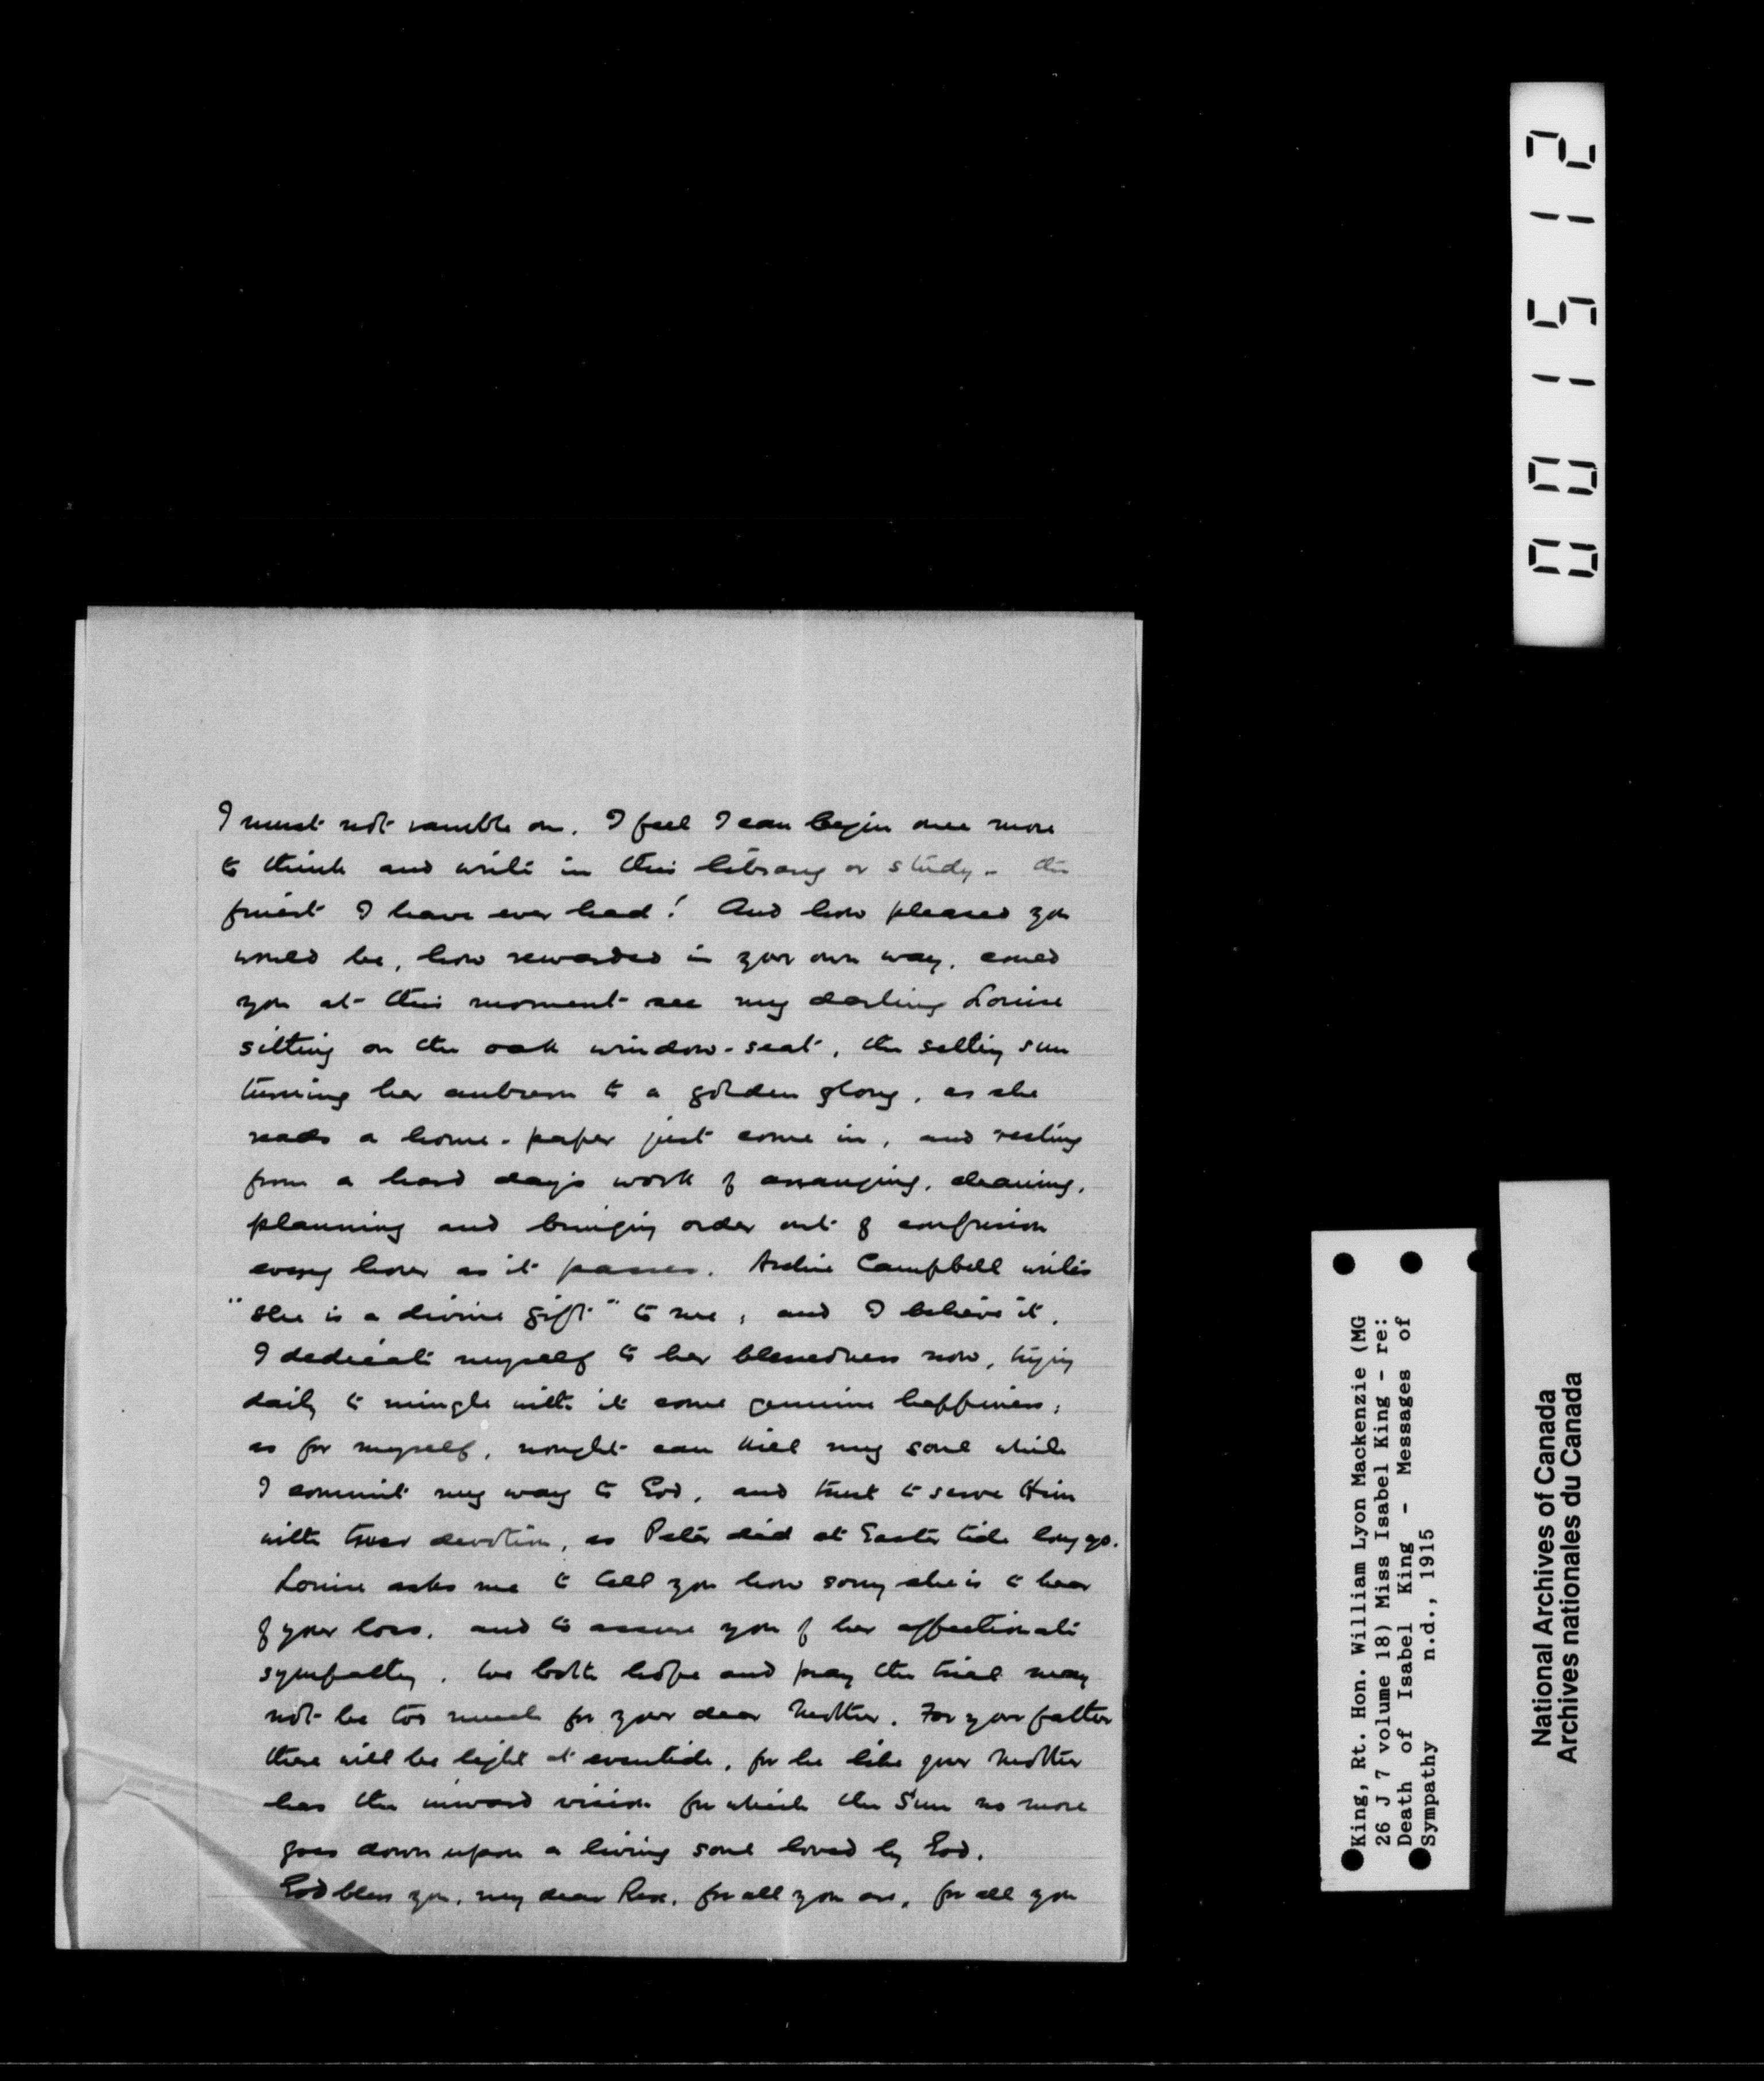 I must not ramble on. I feel I can begin once more
to think and write in this library or study - the
finest I have ever had! And how pleased you
would be, how rewarded in your own way, could
you at this moment see my darling Louise
sitting on the oak window-seat, the setting sun
turning her auburn to a golden glory, as she
reads a home-paper just come in, and resting
from a hard day's work of arranging, cleaning,
planning and bringing order out of confusion
every hour as it passes. Archie Campbell writes
"she is a divine gift" to me, and I believe it.
I dedicate myself to her blessedness now, trying
daily to mingle with it some genuine happiness;
as for myself, nought can kill my soul while
I commit my way to God, and trust to serve Him
with truer devotion, as Peter did at Easter tide long ago.
Louise asks me to tell you how sorry she is to hear
of your loss, and to assure you of her affectionate
sympathy. We both hope and pray the trial may
not be too much for your dear Mother. For your father
there will be light at eventide, for he like your Mother
has the inward vision for which the Sun no more
goes down upon a living soul loved by God.
God bless you, my dear Rex, for all you are, for all you
001512
King, Rt. Hon. William Lyon Mackenzie (MG
26 J 7 volume 18) Miss Isabel King - re:
Death of Isabel King - Messages of
Sympathy n.d., 1915
National Archives of Canada
Archives nationales du Canada